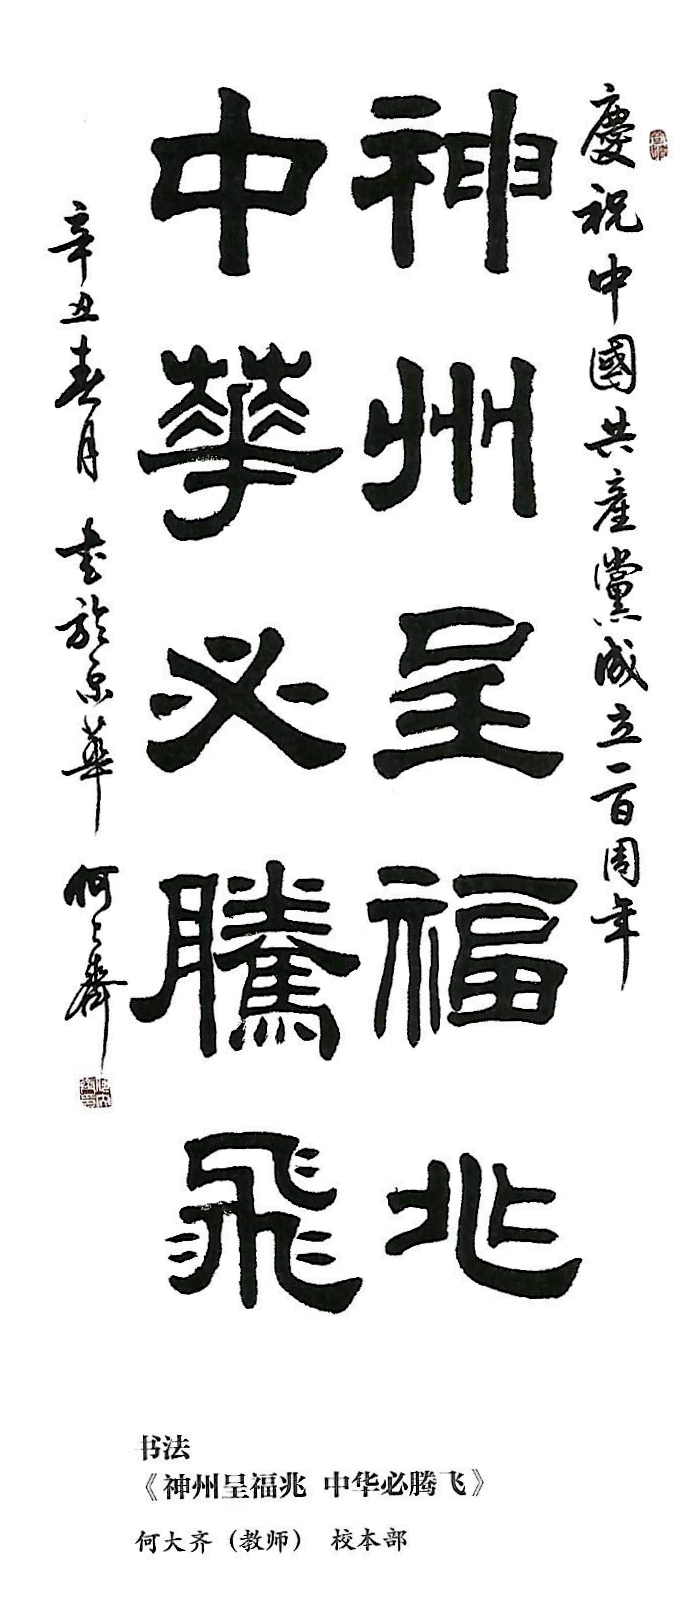 慶祝中國共產黨成立一百周年
神州呈福兆
中華必騰飛
辛丑春月 书於京華 何大齊
书法
《神州呈福兆 中华必腾飞》
何大齐（教师） 校本部